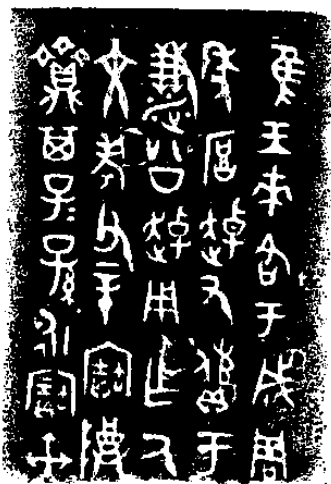 隹王來各于成周
年厚趠又𠊨于
濂公趠用乍氒
文考父辛寶尊
齍其子＝孫＝永寶朿